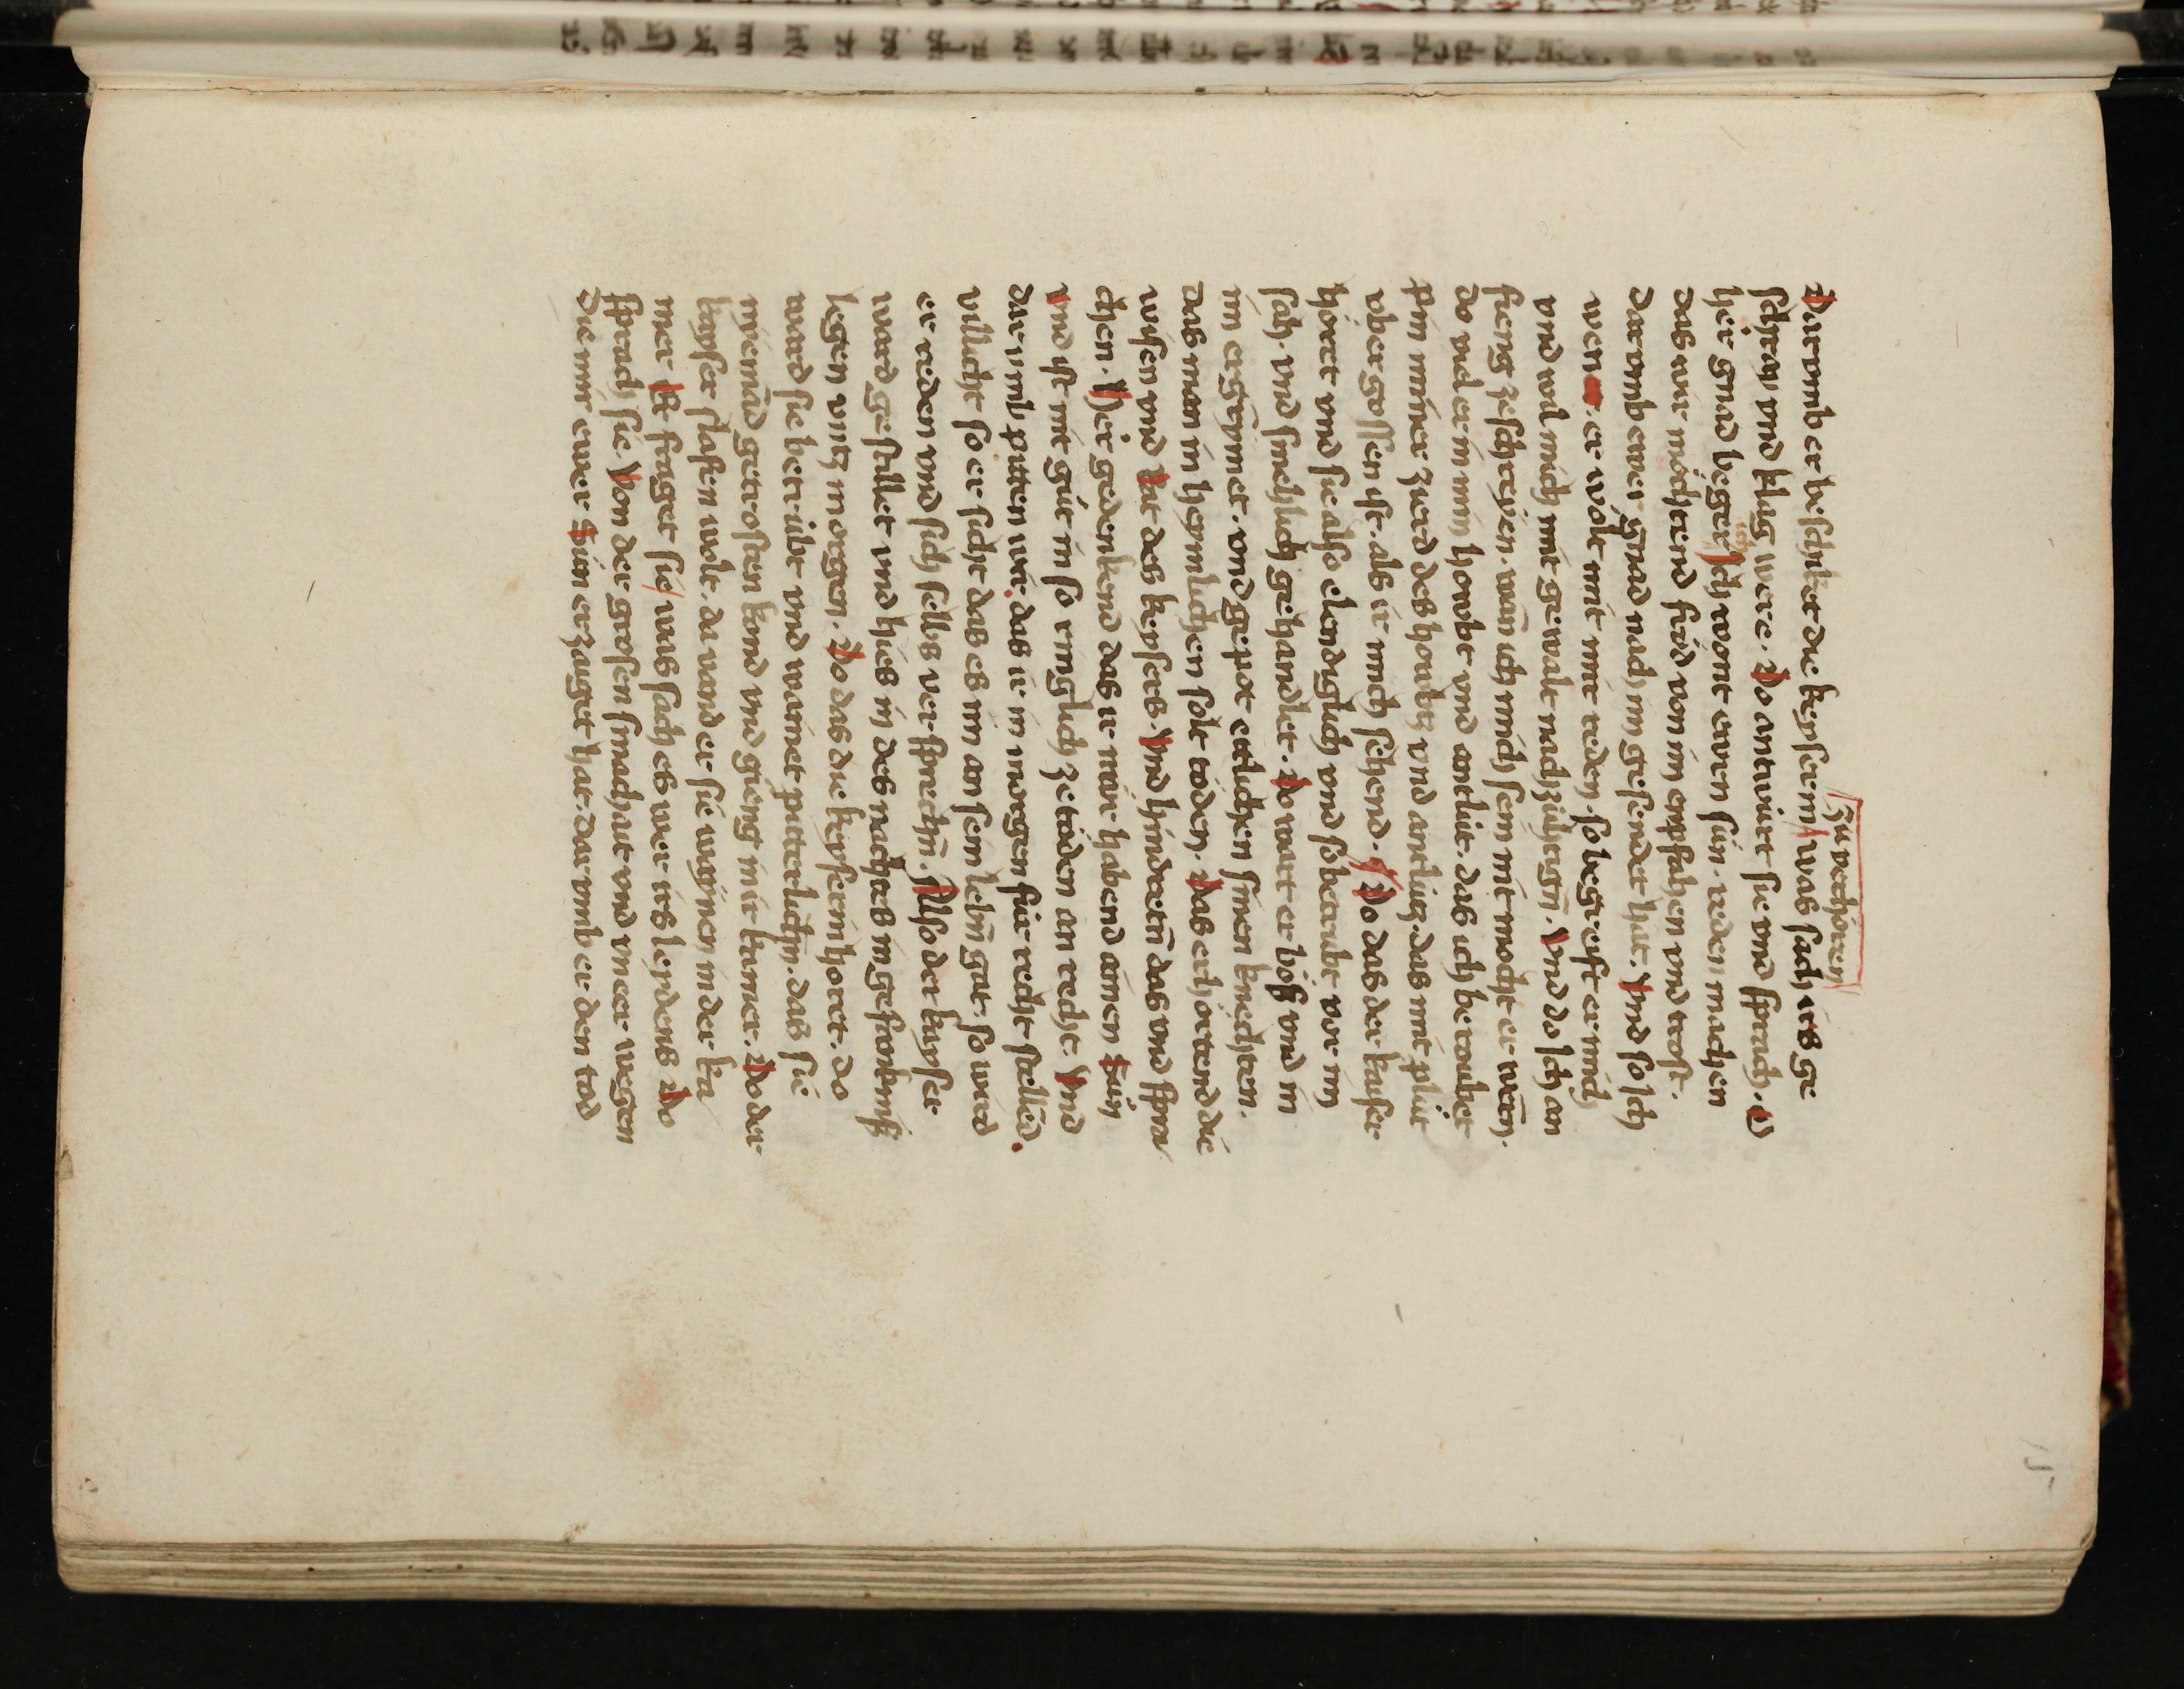 zu verhören
Darvmb er beschikt die keyserein was sach irs ge
schray vnd klag were. Do antwurt sie vnd sprach. O
her gnad beger ich
Ich wont ewen sun reden machen
das wir möchtend frid von im enpfahen vnd trost.
darvmb ewer gnad nach im gesendet hat. Vnd so ich
wen er wolt mit mir reden. so begreift er mich
vnd wil mich mit gewalt nachzühegn. Vnd do ich an
fieng zeschreyen. wan ich mich sein nit mocht erwern.
do viel er in min howbt vnd antlüt. das ich beroubet
pin miner zierd des houbtz vnd antlütz. das mit plüt
vbergossen ist. als ir mich sehend. Do das der kaiser
hort vnd sie also elendiglich vnd so beraubt vor im
sach. vnd smehlich gehandlet. Do wart er böß vnd in
im ergrymet. vnd gepot etlichen sinen knechten.
das man in heymlichen solt töden. Das erhortend die
wisen vnd Rät des keysers. Vnd hindretn das vnd spra
chen. Her gedenkend das ir nur habend ainen Sun
vnd ist nit gut in so ringlich zetöden an recht. Vnd
darvmb pitten wir. das ir in morgen für recht stellēd.
villicht so er sicht das es im an sein lebn̄ gat. so wird
er reden vnd sich selbs versprechn̄. Also der kayser
ward gestillet vnd hies in des nachtes in gefanknuß
legen vntz morgen. Do das die keyserin hort. do
ward sie betrübt vnd wainet pitterlichn. das sie
nyemād getrosten kond vnd gieng in ir kamer. Do der
kayser slafen wolt. da vand er sie waynen in der ka
mer Er fraget sie was sach es wer irs leydens Do
sprach sie Von der grosen smachait vnd vneer wegen
Die mir ewer Sun erzaiget hat. darvmb er den tod
15